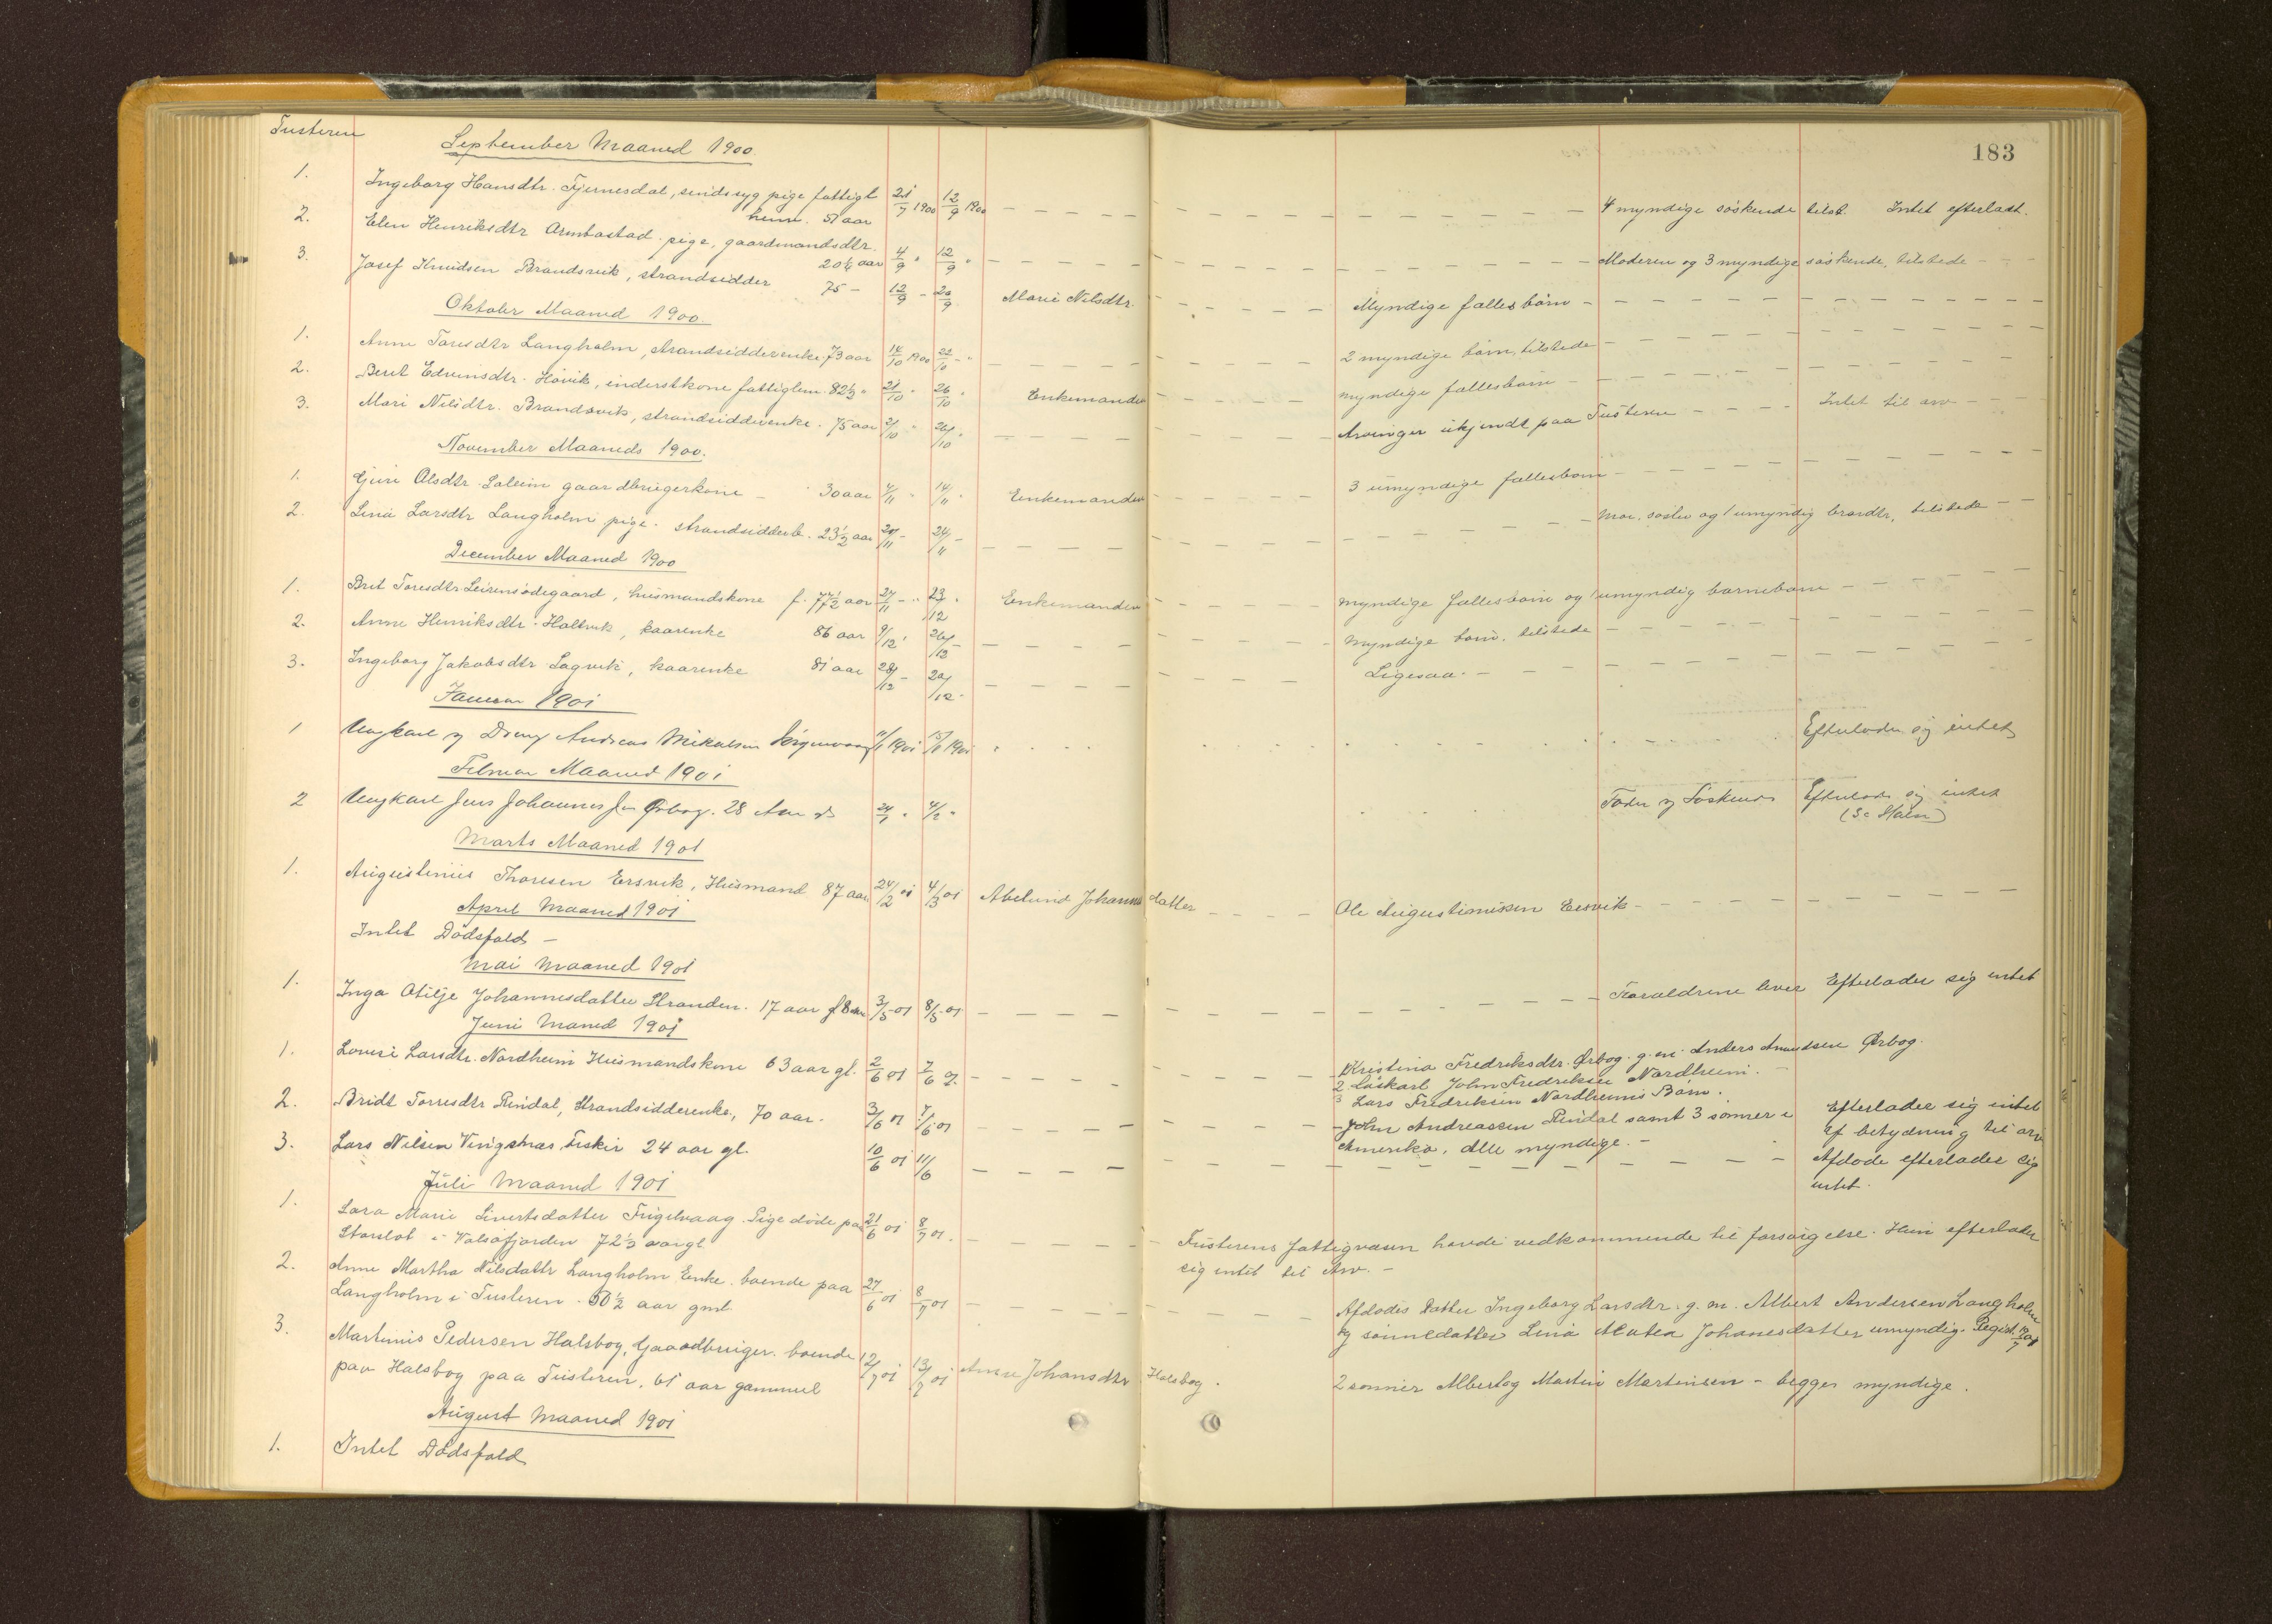 183
Tusteren
September Maaned 1900
1. Ingeborg Hansdtr. Fjernesdal, sindssyg pige fattigl 21/7 1900 12/9 1900 4 myndige søskende tilst. Intet efterladt.
hem. 51 aar
2. Elen Henriksdtr Armbastad. pige, gaardmandsdtr.
20¼ aar 4/9 " 12/9 " Moderen og 3 myndige søskende, tilstede
3. Josef Knudsen Brandsvik, strandsidder 75 – 12/9 – 20/9 Marie Nilsdtr. Myndige fællesbørn
Oktober Maaned 1900
1. Anne Toresdtr Langholm, strandsidderenke. 73 aar 14/10 1900 22/10 – " 2 myndige børn, tilstede
2. Beret Edvinsdtr. Høvik, inderstkone fattiglem. 82½ " 21/10 " 26/10 " Enkemanden myndige fællesbørn
3. Mari Nilsdtr. Brandsvik, strandsidderenke. 75 aar 21/10 " 26/10 " Arvinger ukjendt paa Tusteren Intet til arv
November Maaneds 1900.
1. Guri Olsdtr. Soleim gaardbrugerkone – 30 aar 4/11 " 14/11 " Enkemanden 3 umyndige fællesbørn
2. Lina Larsdtr Langholm pige. strandsidderb. 23½ aar 20/11 – 24/11 – Mor, søster og 1 umyndig brordtr, tilstede
December Maaned 1900
1. Brit Toresdtr Leirensødegaard, husmandskone f. 77½ aar 27/11 – " 23/12 " Enkemanden Myndige fællesbørn og 1 umyndig barnebarn
2. Anne Henriksdtr. Holtvik, kaarenke 86 aar 9/12 " 26/12 – Myndige børn, tilstede
3. Ingeborg Jakobsdtr Lagvik, kaarenke 81 aar 28/12 – 29/12 " Ligesaa.
Januar 1901
1 Ungkarl og Dreng Andreas Mikalsen 11/1 1901 15/1 1901 Efterlader sig intet
Februar Maaned 1901
2 Ungkarl Jens Johannes Ørbog. 28 Aar 24/1 " 4/2 " Fader og Søskende Efterlader sig intet
Marts Maaned 1901
1. Augustinus Thoresen Ersvik, Husmand 87 aar 24/2 01 4/3 01 Abelund Johannsdatter Ole Augustinussen Ersvik
April Maaned 1901
Intet Dødsfald –
Mai Maaned 1901
1. Inga Otilje Johannesdatter Stranden. 17 aar 3/5 01 8/5 01 Forældrene lever Efterlader sig intet
Juni Maaned 1901
1. Lovise Larsdtr. Nordheim Husmandskone 63 aar gl. 2/6 01 7/6 01 Kristina Fredriksdtr. Ørbog. g. m. Anders Amundsen Ørbog.
2 Løskarl John Fredriksen Nordheim.
3 Lars Fredriksen Nordheims Børn.
2. Bridt Torresdtr Rindal, Strandsidderenke, 70 aar. 3/6 01 7/6 01 John Andreassen Rindal samt 3 sønner i Efterlader sig intet
Amerika, alle myndige. – af betydning til arv
3. Lars Nilsen Vingsnæs, Fisker 24 aar gl. 10/6 01 11/6 Afdøde efterlader sig
intet.
Juli Maaned 1901
1. Sara Marie Sivertsdatter Frigelvaag. Pige døde paa 21/6 01 8/7 01.
Storslot i Valsøfjorden 72½ aar gl.
Tusterens Fattigvæsen havde vedkommende til forsørgelse. Hun efterlader
sig intet til Arv. –
2. Anne Martha Nilsdattr Langholm Enke. boende paa 27/6 01 8/7 01
Langholm i Tusteren. 50½ aar gml.
Afdødes Datter Ingeborg Larsdtr. g. m. Albert Andersen Langholm
og sønnedatter Lina Johanesdatter umyndig. Regist.
3. Martinus Pedersen Halsbog, Gaardbruger. boende 12/7 01 13/7 01 Anne Johansdtr Halsbog. 2 sønner Albert og Martin Martinsen – begge myndige.
paa Halsbog paa Tusteren, 61 aar gammel
August Maaned 1901
1. Intet Dødsfald